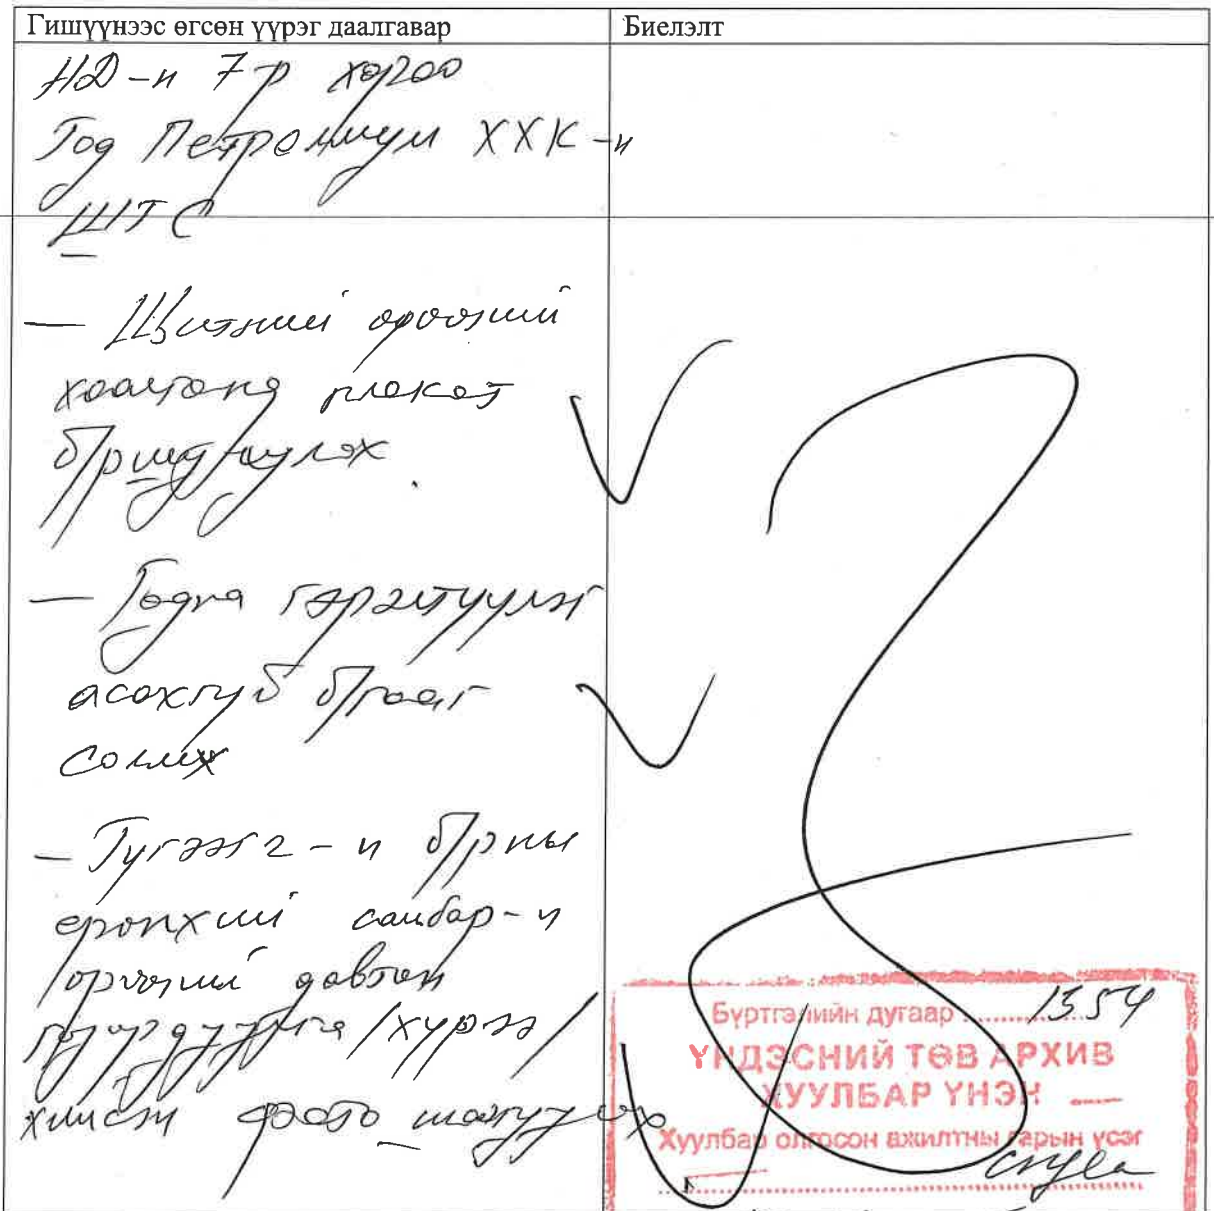 Гишүүнээс өгсөн үүрэг даалгавар
Биелэлт
НД-н 7-р хороо
Год Петролиум ХХК-н
ШТС
— Щитний өрөөний
хаалганд плакат
б/ршуулах
— Гадна гэрэлтүүлэг
асахгүй б/гааг
солих
— Түгээгч-н б/рны
ерөнхий самбар-н
орчны давтан
/хүрээ/
хийсэн фото
Бүртгэлийн дугаар ........ 1354
ҮНДЭСНИЙ ТӨВ АРХИВ
ХУУЛБАР ҮНЭН
Хуулбар олгосон ажилтны гарын үсэг